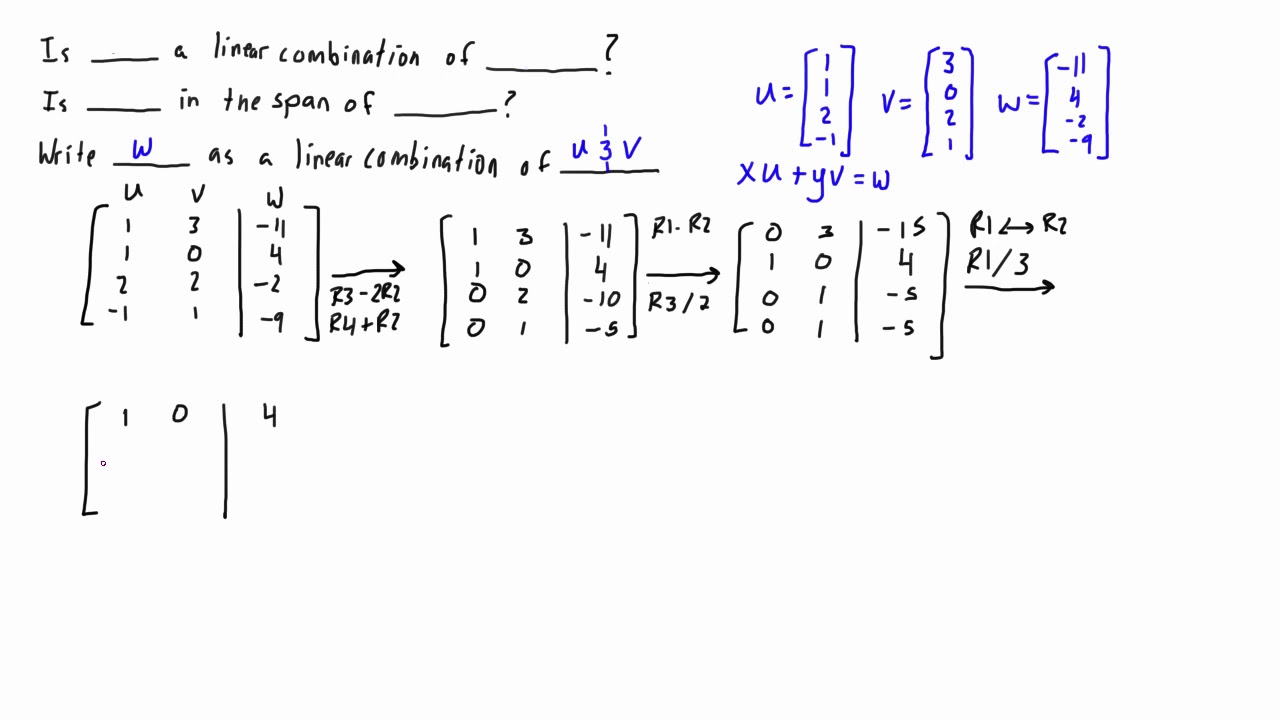 Is ____ a linear combination of ______?
Is ____ in the span of ______?
Write w as a linear combination of u & v
u = [1 1 2 -1] v = [3 0 2 1] w = [-11 4 -2 -9]
xu + yv = w
u v w
1 3 | -11
1 0 | 4
2 2 | -2
-1 1 | -9
R3 - 2R2
R4 + R2
1 3 | -11
1 0 | 4
0 2 | -10
0 1 | -5
R1 - R2
R3 / 2
0 3 | -15
1 0 | 4
0 1 | -5
0 1 | -5
R1 ↔ R2
R1 / 3
1 0 | 4